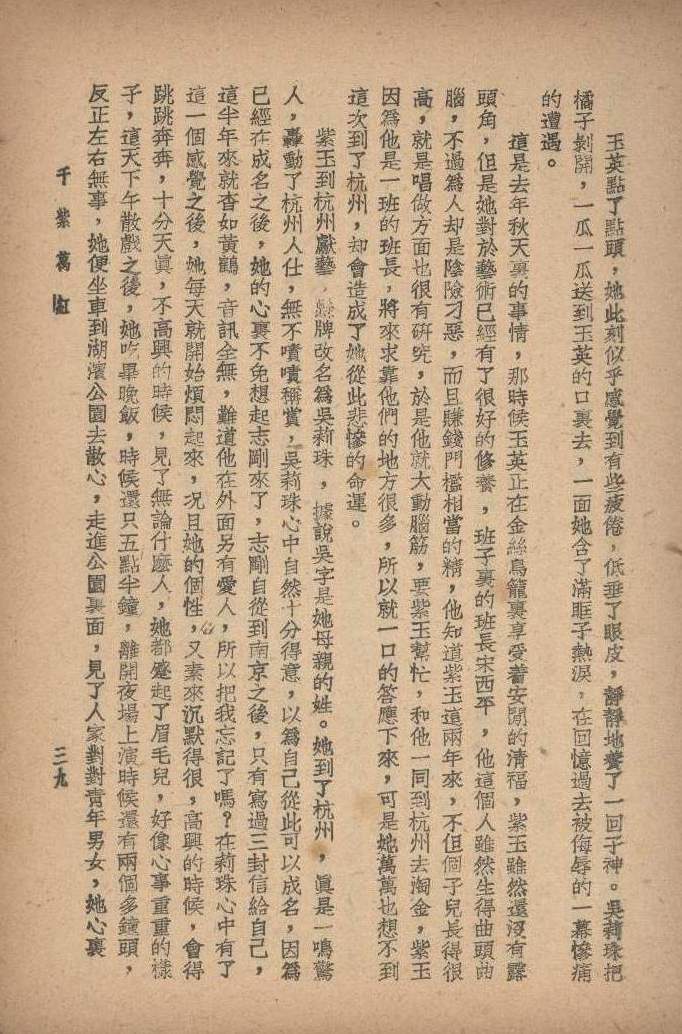 玉英點了點頭，她此刻似乎感覺到有些疲倦，低垂了眼皮，靜靜地養了一回子神。吳莉珠把
橘子剝開，一瓜一瓜送到玉英的口裏去，一面她含了滿眶子熱淚，在回憶過去被侮辱的一幕慘痛
的遭遇。
這是去年秋天裏的事情，那時候玉英正在金絲鳥籠裏享受着安閒的清福，紫玉雖然還沒有露
頭角，但是她對於藝術已經有了很好的修養，班子裏的班長宋西平，他這個人雖然生得曲頭曲
腦，不過為人却是陰險刁惡，而且賺錢門檻相當的精，他知道紫玉這兩年來，不但個子兒長得很
高，就是唱做方面也很有研究，於是他就大動腦筋，要紫玉幫忙，和他一同到杭州去淘金，紫玉
因為他是一班的班長，將來求靠他們的地方很多，所以就一口的答應下來，可是她萬萬也想不到
這次到了杭州，却會造成了她從此悲慘的命運。
紫玉到杭州獻藝，牌改名為吳莉珠，據說吳字是她母親的姓。她到了杭州，眞是一鳴驚
人，轟動了杭州人仕，無不嘖嘖稱賞，吳莉珠心中自然十分得意，以為自己從此可以成名，因為
已經在成名之後，她的心裏不免想起志剛來了，志剛自從到南京之後，只有寫過三封信給自己，
這半年來就杳如黃鶴，音訊全無，難道他在外面另有愛人，所以把我忘記了嗎？在莉珠心中有了
這一個感覺之後，她每天就開始煩悶起來，况且她的個性，又素來沉默得很，高興的時候，會得
跳跳奔奔，十分天眞，不高興的時候，見了無論什麼人，她都蹙起了眉毛兒，好像心事重重的樣
子，這天下午散戲之後，她吃畢晚飯，時候還只五點半鐘，離開夜場上演時候還有兩個多鐘頭，
反正左右無事，她便坐車到湖濱公園去散心，走進公園裏面，見了人家對對青年男女，她心裏
千紫萬紅
三九